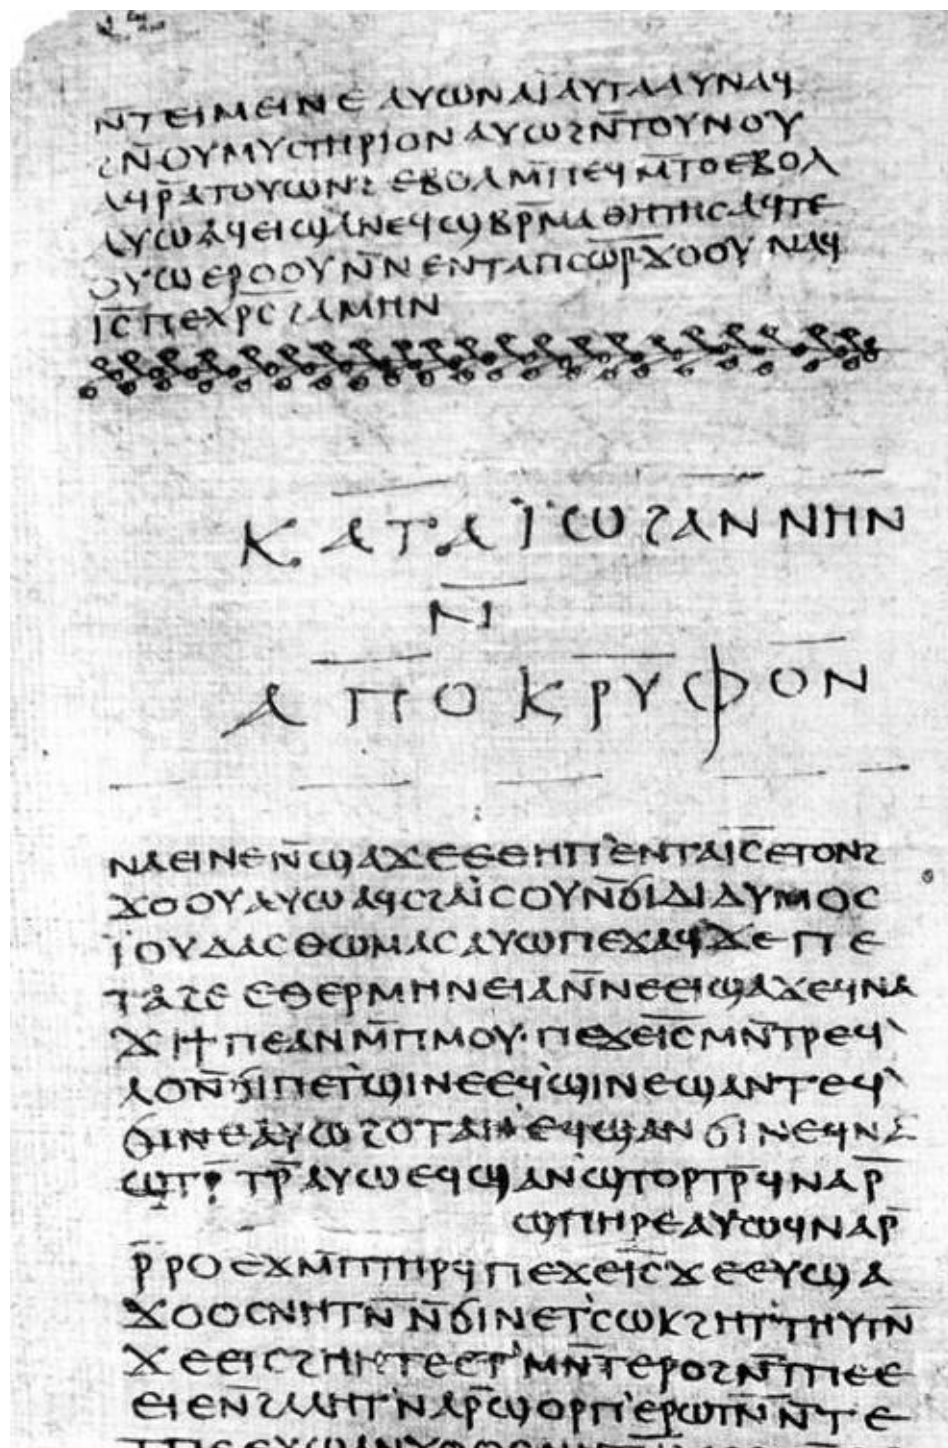 ⲛ̄ⲧⲉⲓⲙⲉⲓⲛⲉ ⲁⲩⲱ ⲛⲁⲓ̈ ⲁⲩⲧⲁⲁⲩ ⲛⲁϥ
ϩⲛ̄ ⲟⲩⲙⲩⲥⲧⲏⲣⲓⲟⲛ ⲁⲩⲱ ϩⲛ̄ ⲧⲟⲩⲛⲟⲩ
ⲁϥⲣ̄ ⲁⲧⲟⲩⲱⲛϩ ⲉⲃⲟⲗ ⲙ̄ⲡⲉϥⲙ̄ⲧⲟ ⲉⲃⲟⲗ
ⲁⲩⲱ ⲁϥⲉⲓ ϣⲁ ⲛⲉϥϣⲃⲣ̄ⲙⲁⲑⲏⲧⲏⲥ ⲁϥⲧⲉ
ⲟⲩⲱ ⲉⲣⲟⲟⲩ ⲛ̄ⲛⲉⲛⲧⲁ ⲡⲥⲱ̄ⲣ̄ ϫⲟⲟⲩ ⲛⲁϥ
ⲓ̅ⲥ̅ ⲡⲉⲭⲣ̅ⲥ̅ ϩⲁⲙⲏⲛ
ⲕⲁⲧⲁ ⲓ̈ⲱϩⲁⲛⲛⲏⲛ
ⲛ̄
ⲁⲡⲟⲕⲣⲩⲫⲟⲛ
ⲛⲁⲉⲓ ⲛⲉ ⲛ̄ϣⲁϫⲉ ⲉⲑⲏⲡ ⲉⲛⲧⲁ ⲓ̅ⲥ̅ ⲉⲧⲟⲛϩ
ϫⲟⲟⲩ ⲁⲩⲱ ⲁϥⲥϩⲁⲓ̈ⲥⲟⲩ ⲛ̄ϭⲓ ⲇⲓⲇⲩⲙⲟⲥ
ⲓ̈ⲟⲩⲇⲁⲥ ⲑⲱⲙⲁⲥ ⲁⲩⲱ ⲡⲉϫⲁϥ ϫⲉ ⲡⲉ
ⲧⲁϩⲉ ⲉⲑⲉⲣⲙⲏⲛⲉⲓⲁ ⲛ̄ⲛⲉⲉⲓϣⲁϫⲉ ϥⲛⲁ
ϫⲓ ϯⲡⲉ ⲁⲛ ⲙ̄ⲡⲙⲟⲩ· ⲡⲉϫⲉ ⲓ̅ⲥ̅ ⲙⲛ̄ⲧⲣⲉϥ
ⲗⲟ ⲛ̄ϭⲓ ⲡⲉⲧϣⲓⲛⲉ ⲉϥϣⲓⲛⲉ ϣⲁⲛⲧⲉϥ
ϭⲓⲛⲉ ⲁⲩⲱ ϩⲟⲧⲁⲛ ⲉϥϣⲁⲛϭⲓⲛⲉ ϥⲛⲁ
ϣⲧⲣ̄ⲧⲣ̄ ⲁⲩⲱ ⲉϥϣⲁⲛϣⲧⲟⲣⲧⲣ̄ ϥⲛⲁⲣ̄
ϣⲡⲏⲣⲉ ⲁⲩⲱ ϥⲛⲁⲣ̄
ⲣ̄ⲣⲟ ⲉϫⲙ̄ ⲡⲧⲏⲣϥ ⲡⲉϫⲉ ⲓ̅ⲥ̅ ϫⲉ ⲉⲩϣⲁ
ϫⲟⲟⲥ ⲛⲏⲧⲛ̄ ⲛ̄ϭⲓ ⲛⲉⲧ’ⲥⲱⲕ ϩⲏⲧ’ ⲧⲏⲩⲧⲛ̄
ϫⲉ ⲉⲓⲥϩⲏⲏⲧⲉ ⲉⲧ’ⲙⲛ̄ⲧⲉⲣⲟ ϩⲛ̄ ⲧⲡⲉ ⲉ
ⲉⲓⲉ ⲛ̄ϩⲁⲗⲏⲧ’ ⲛⲁⲣ̄ ϣⲟⲣⲡ’ ⲉⲣⲱⲧⲛ̄ ⲛ̄ⲧⲉ